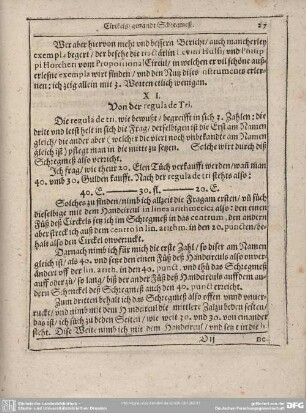 Circkels gewandt Schregmeß. 27
Wer aber hiervon mehr und bessern Bericht/ auch mancherley
exempla begert / der besehe die tractätlin Levini Hulsij und Philip-
pi Horchers vom Proportional Circul/ in welchen er vil schöne auß-
erlesne exempla wirt finden / und den Nutz dises instruments erler-
nen : ich zeig allein mit 3. Worten etlich wenigen.
X I.
Von der regula de Tri.
Die regula de tri, wie bewußt / begreifft in sich 3. Zahlen : die
dritt und letst helt in sich die Frag / derselbigen ist die Erst am Namen
gleich / die ander aber ( welche die viert noch unbekandt am Namen
gleich ist ) pflegt man in die mitte zu setzen. Solche wirt durch diß
Schregmeß also verricht.
Ich frag / wie thewr 20. Elen Tüch verkaufft werden / wañ man
40. umb 30. Gulden kaufft. Nach der regula de tri stehts also :
40. E. —— 30. fl. —— 20. E.
Solches zu finden / nimb ich allzeit die Fragam ersten / uñ süch
dieselbige mit dem Handcircul in linea arithmetica also : den einen
Füß deß Circkels setz ich im Schregmeß in das centrum, den andern
aber streck ich auß dem centro in lin. arithm. in den 20. punct en / be-
halt also den Circkel onverruckt.
Darnach nimb ich für mich die erste Zahl / so diser am Namen
gleich ist / als 40. und setz den einen Füß deß Handcirculs also onver-
ändert uff der lin. arith. in den 40. punct, und thü das Schregmeß
auff oder zu / so lang / biß der ander Füß deß Handcirculs auff dem an-
dern Schenckel deß Schregmeß auch den 40. punct erreicht.
Zum dritten behalt ich das Schregmeß also offen unnd unver-
ruckt / und nimb mit dem Handcircul die mittlere Zal zu beden seiten /
das ist / ich süch zu beden Seiten / wie weit 30. und 30. von einander
steht. Dise Weite nimb ich mit dem Handcircul / und setz in die li-
D ij ne-